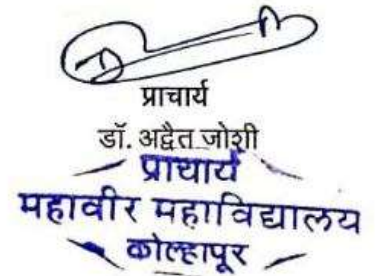 प्राचार्य
डॉ. अद्वैत जोशी
प्राचार्य
महावीर महाविद्यालय
कोल्हापूर